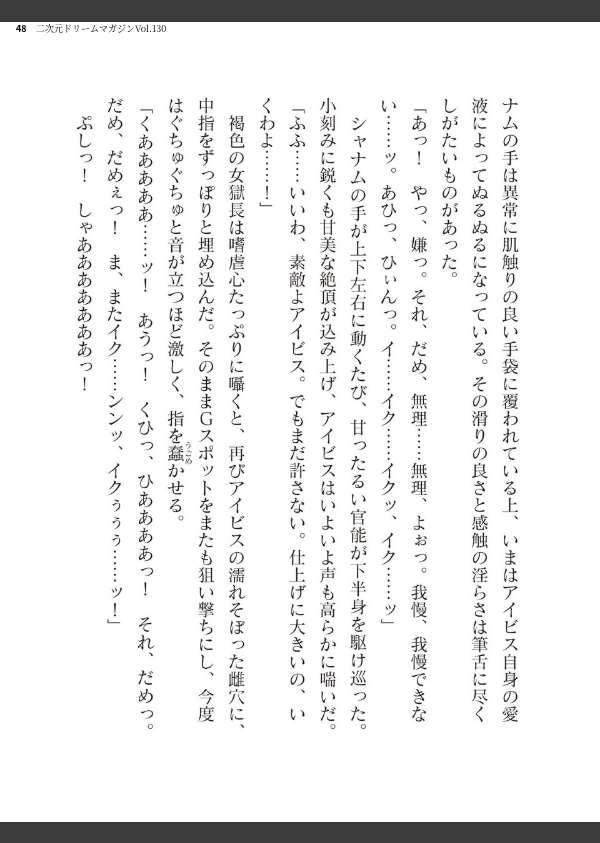 48 二次元ドリームマガジンVol.130
ナムの手は異常に肌触りの良い手袋に覆われている上、いまはアイビス自身の愛
液によってぬるぬるになっている。その滑りの良さと感触の淫らさは筆舌に尽く
しがたいものがあった。
「あっ！　やっ、嫌っ。それ、だめ、無理……無理、よぉっ。我慢、我慢できな
い……ッ。あひっ、ひぃんっ。イ……イク……イクッ、イク……ッ」
　シャナムの手が上下左右に動くたび、甘ったるい官能が下半身を駆け巡った。
小刻みに鋭くも甘美な絶頂が込み上げ、アイビスはいよいよ声も高らかに喘いだ。
「ふふ……いいわ、素敵よアイビス。でもまだ許さない。仕上げに大きいの、い
くわよ……！」
　褐色の女獄長は嗜虐心たっぷりに囁くと、再びアイビスの濡れそぼった雌穴に、
中指をずっぽりと埋め込んだ。そのままＧスポットをまたも狙い撃ちにし、今度
はぐちゅぐちゅと音が立つほど激しく、指を蠢かせる。
うごめ
「くあああああ……ッ！　あうっ！　くひっ、ひああああっ！　それ、だめっ。
だめ、だめぇっ！　ま、またイク……ンンッ、イクぅぅぅ……ッ！」
　ぷしっ！　しゃああああああああっ！